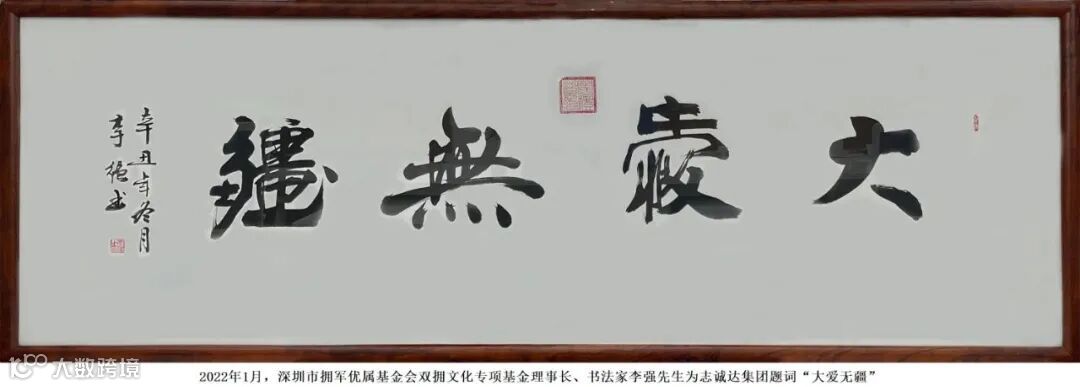 大愛無疆
辛丑年冬月
李强书
大数跨境
2022年1月，深圳市拥军优属基金会双拥文化专项基金理事长、书法家李强先生为志诚达集团题词“大爱无疆”